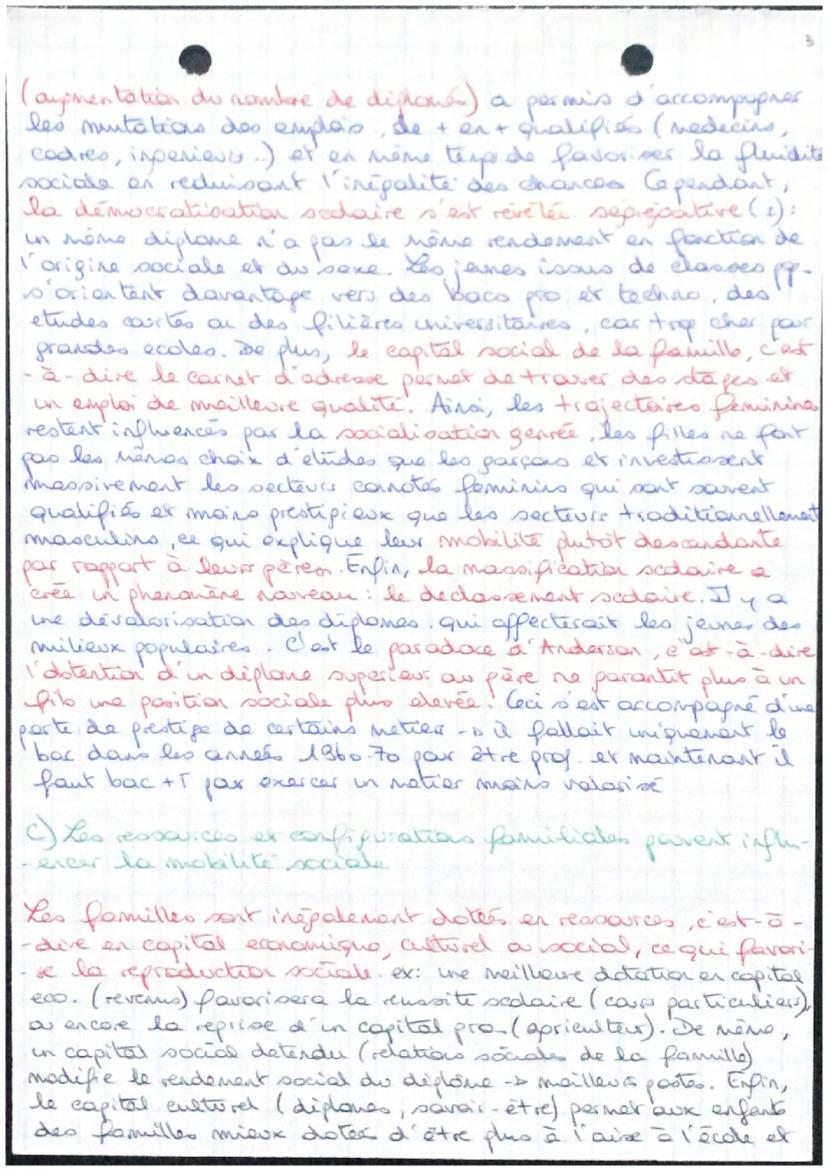 3
(augmentation du nombre de diplomés) a permis d'accompagner
les mutations des emplois, de + en + qualifiés (medecins,
cadres, ingenieurs..) et en même temps de favoriser la fluidité
sociale en reduisant l'inégalité des chances. Cependant,
la démocratisation scolaire s'est révélée ségrégative (2):
un même diplome n'a pas le même rendement en fonction de
l'origine sociale et du sexe. Les jeunes issus de classes pp.
s'orientent davantage vers des bacs pro et techno, des
etudes courtes ou des filières universitaires, car trop cher pour
grandes ecoles. De plus, le capital social de la famille, c'est
-à-dire le carnet d'adresse permet de trouver des stages et
un emploi de meilleure qualité. Ainsi, les trajectoires féminines
restent influencés par la socialisation genrée, les filles ne font
pas les mêmes choix d'études que les garçons et investissent
massivement les secteurs connotés feminins qui sont souvent
qualifiés et moins prestigieux que les secteurs traditionnellement
masculins, ce qui explique leur mobilité plutôt descendante
par rapport à leurs pères. Enfin, la massification scolaire a
crée un phenomène nouveau : le declassement scolaire. Il y a
une dévalorisation des diplomes, qui affecterait les jeunes des
milieux populaires. C'est le paradoxe d'Anderson, c'est-à-dire
l'obtention d'un diplome superieur au père ne garantit plus à un
fils une position sociale plus elevée. Ceci s'est accompagné d'une
perte de prestige de certains metier -> il fallait uniquement le
bac dans les années 1960-70 pour être prof. et maintenant il
faut bac +5 pour exercer un metier moins valorisé
C) Les ressources et configurations familiales peuvent influ-
-encer la mobilité sociale
Les familles sont inégalement dotées en ressources, c'est-à-
-dire en capital economique, culturel ou social, ce qui favori-
-se la reproduction sociale. ex: une meilleure dotation en capital
eco. (revenus) favorisera la reussite scolaire (cours particuliers),
ou encore la reprise d'un capital pro (agriculteur). De même,
un capital social detendu (relations sociales de la famille)
modifie le rendement social du diplôme -> meilleurs postes. Enfin,
le capital culturel (diplomes, savoir-être) permet aux enfants
des familles mieux dotées d'être plus à l'aise à l'école et